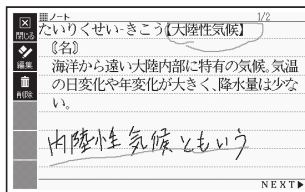 ノート 1/2
閉じる
たいりくせい-きこう【大陸性気候】
〘名〙
編集
海洋から遠い大陸内部に特有の気候。気温
の日変化や年変化が大きく、降水量は少な
い。
削除
内陸性気候ともいう
NEXT▶